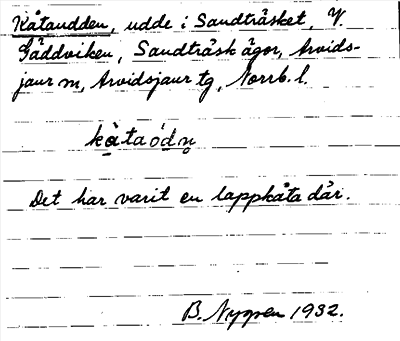 Kåtaudden, udde i Sandträsket, V.
Gäddviken, Sandträsk ägor, Arvids-
jaur sn, Arvidsjaur tg, Norrb. l.
kå̀taódn̥
Det har varit en lappkåta där.
B. Nygren 1932.